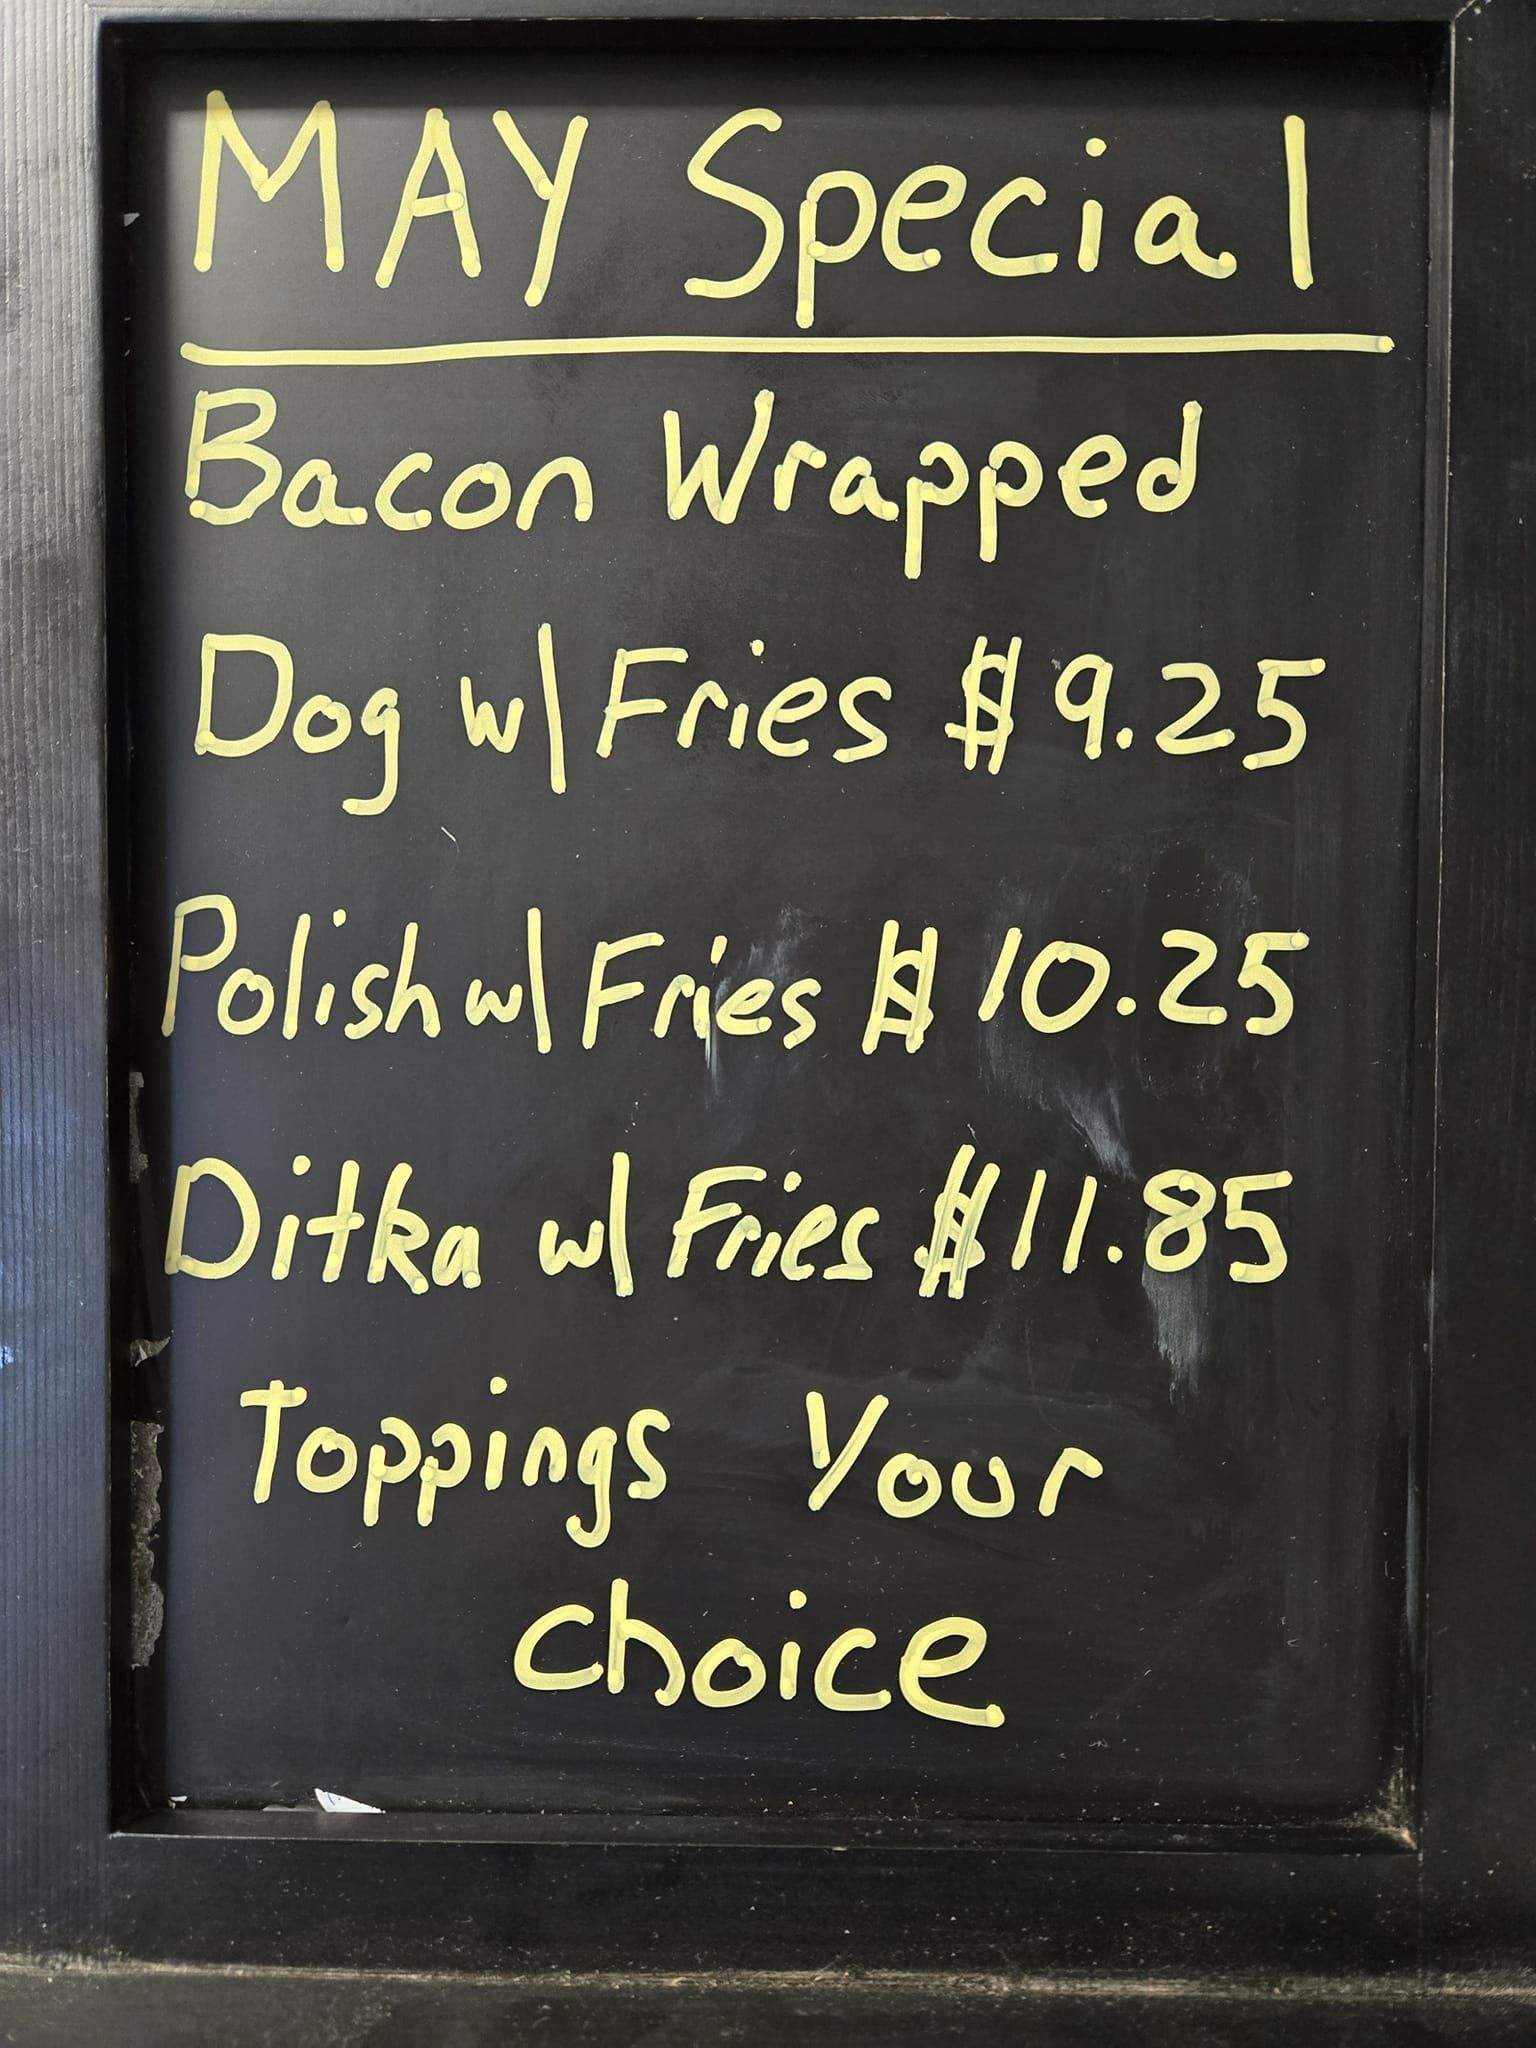 MAY Special
Bacon Wrapped
Dog w/ Fries $9.25
Polish w/ Fries $10.25
Ditka w/ Fries $11.85
Toppings Your
choice